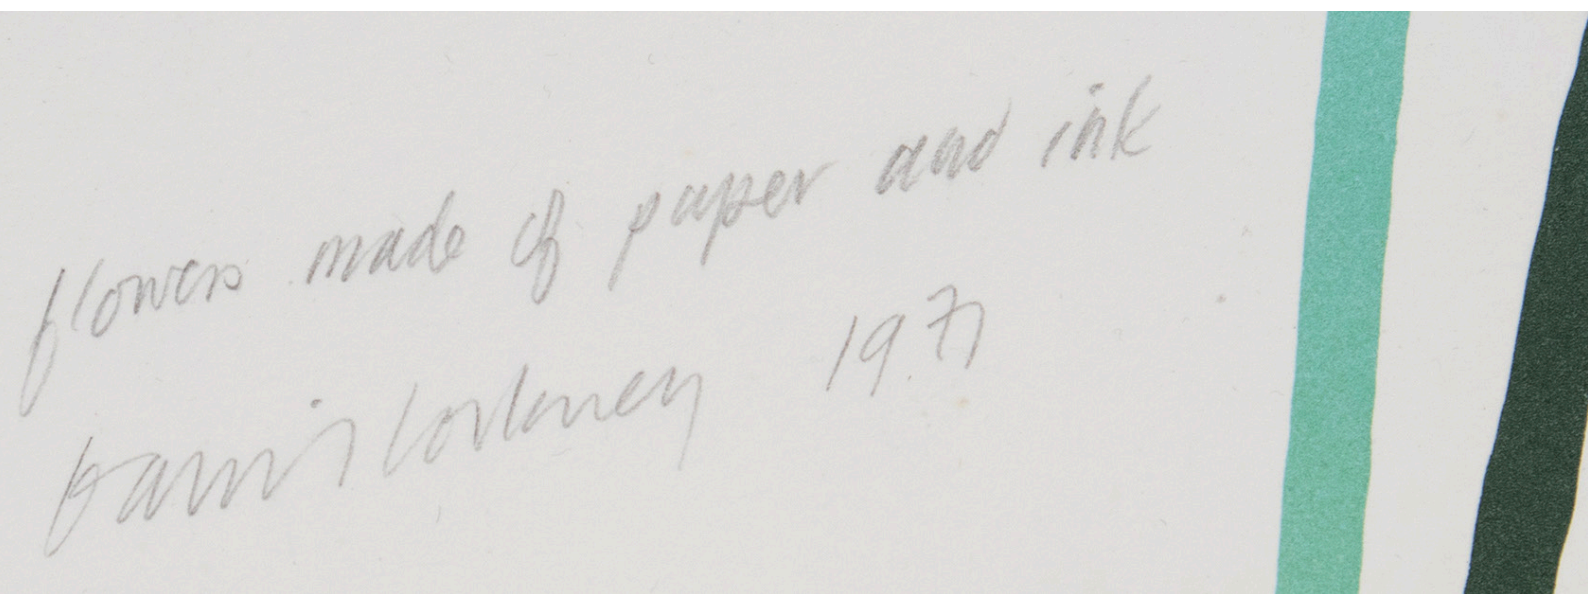 flowers made of paper and ink
David Hockney 1971